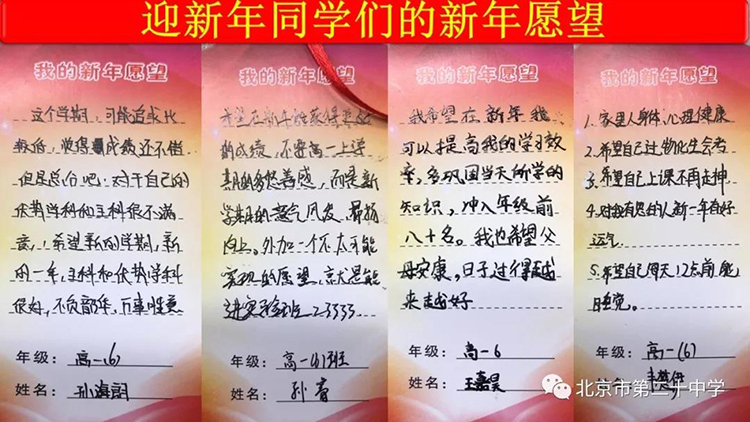 迎新年同学们的新年愿望
我的新年愿望
这个学期，习惯追求比
较低，觉得成绩还不错
但是总分吧：对于自己的
优势学科和主科很不满
意，希望新的学期，新
的一年，主科和优势学科
很好，不负韶华，万事胜意
年级：高一(6)
姓名：孙海
我的新年愿望
希望在新年能获得更好
的成绩，不要高一上学
期的多愁善感，而是新
学期的意气风发，昂扬
向上。外加一个不太可能
实现的愿望，就是能
进实验班23333
年级：高一(6)班
姓名：孙
我的新年愿望
我希望在新年我
可以提高我的学习效
率，多巩固当天所学的
知识，冲入年级前
八十名。我也希望父
母安康，日子过得越
来越好
年级：高一6
姓名：王嘉昊
我的新年愿望
1.家里人身体,心理健康
2.希望自己过物化生会考
3.希望自己上课不再走神
4.对我有恩的人新一年有好
运气
5.希望自己每天12点前能
睡觉。
年级：高一(6)
姓名：
北京市第二十中学